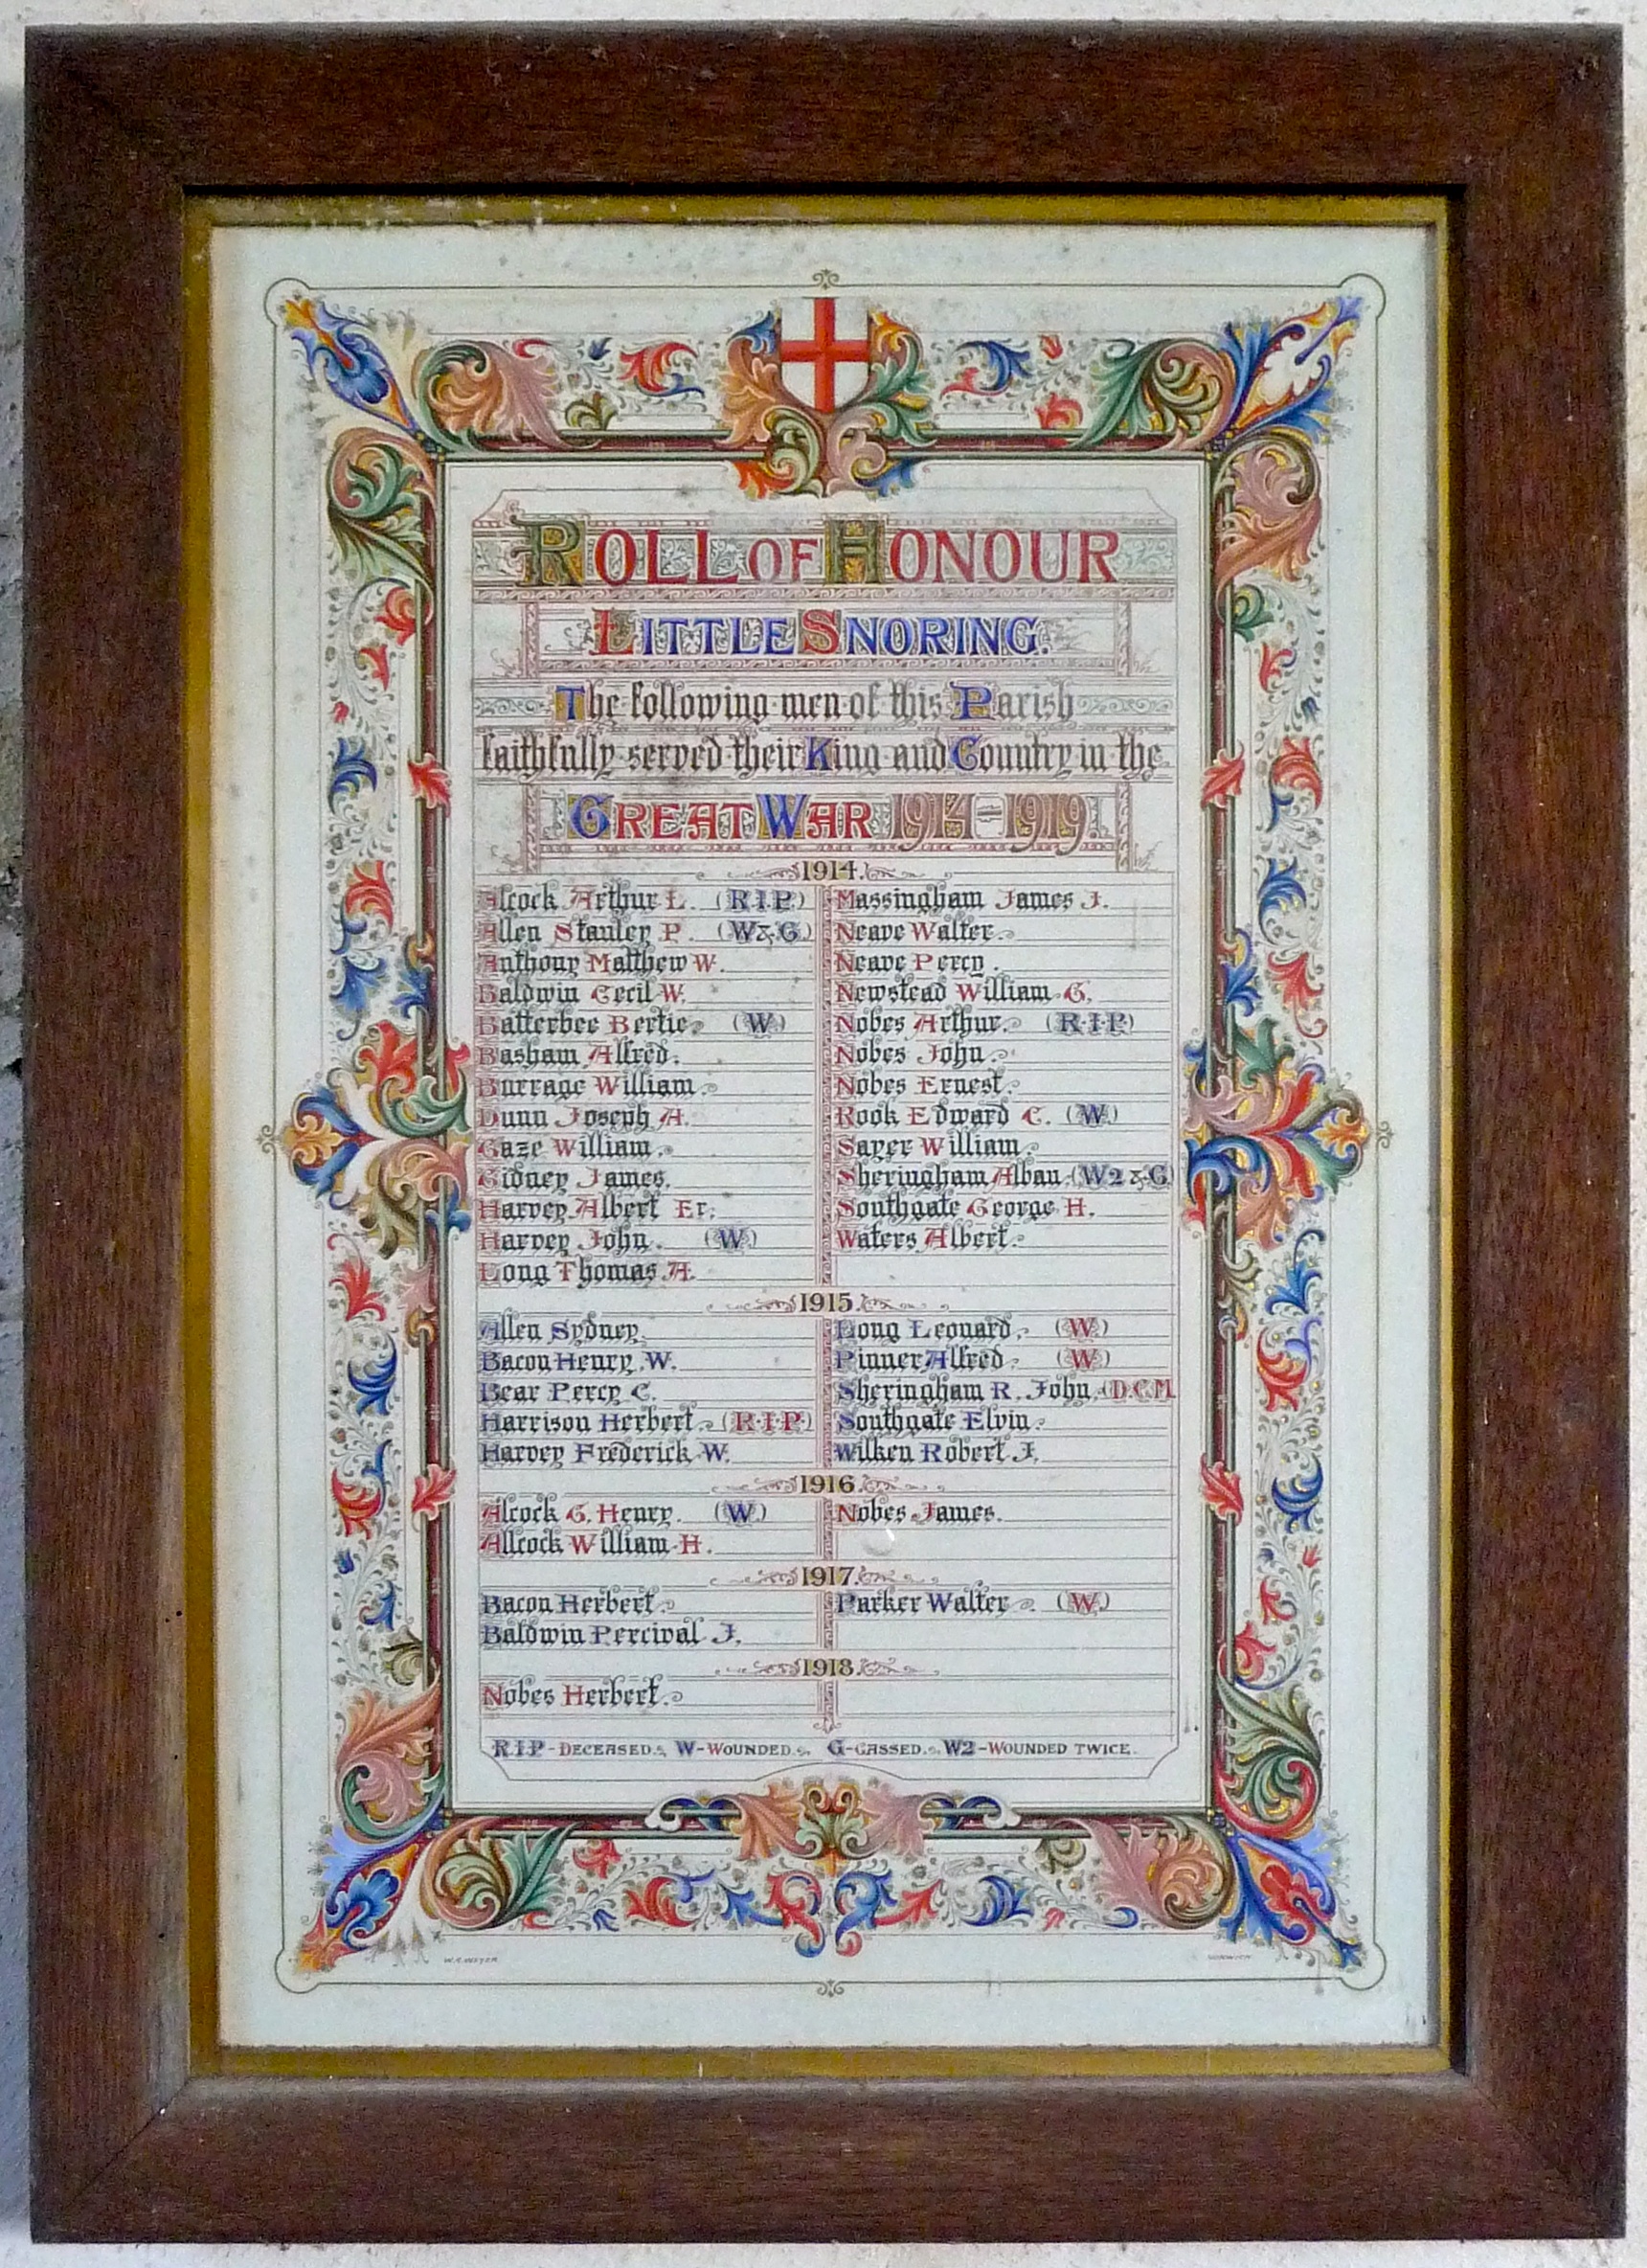 ROLL OF HONOUR
LITTLE SNORING.
The following men of this Parish
faithfully served their King and Country in the
GREAT WAR 1914-1919.
1914.
Alcock Arthur L. (R.I.P.)
Allen Stanley P. (W & G.)
Anthony Matthew W.
Baldwin Cecil W.
Batterbee Bertie. (W.)
Basham Alfred.
Burrage William.
Dunn Joseph A.
Gaze William.
Gidney James.
Harvey Albert Er.
Harvey John. (W.)
Long Thomas A.
Massingham James J.
Neave Walter.
Neave Percy.
Newstead William G.
Nobes Arthur. (R.I.P)
Nobes John.
Nobes Ernest.
Rook Edward C. (W.)
Sayer William.
Sheringham Alban (W2 & G)
Southgate George H.
Waters Albert.
1915.
Allen Sydney.
Bacon Henry W.
Bear Percy C.
Harrison Herbert. (R.I.P.)
Harvey Frederick W.
Long Leonard. (W.)
Pinner Alfred. (W.)
Sheringham R. John. (D.C.M.
Southgate Elvin.
Wilken Robert J.
1916.
Alcock G. Henry. (W.)
Allcock William H.
Nobes James.
1917.
Bacon Herbert.
Baldwin Percival J.
Parker Walter. (W.)
1918.
Nobes Herbert.
R.I.P - DECEASED. W - WOUNDED. G - GASSED. W2 - WOUNDED TWICE.
W.R. WEYER NORWICH